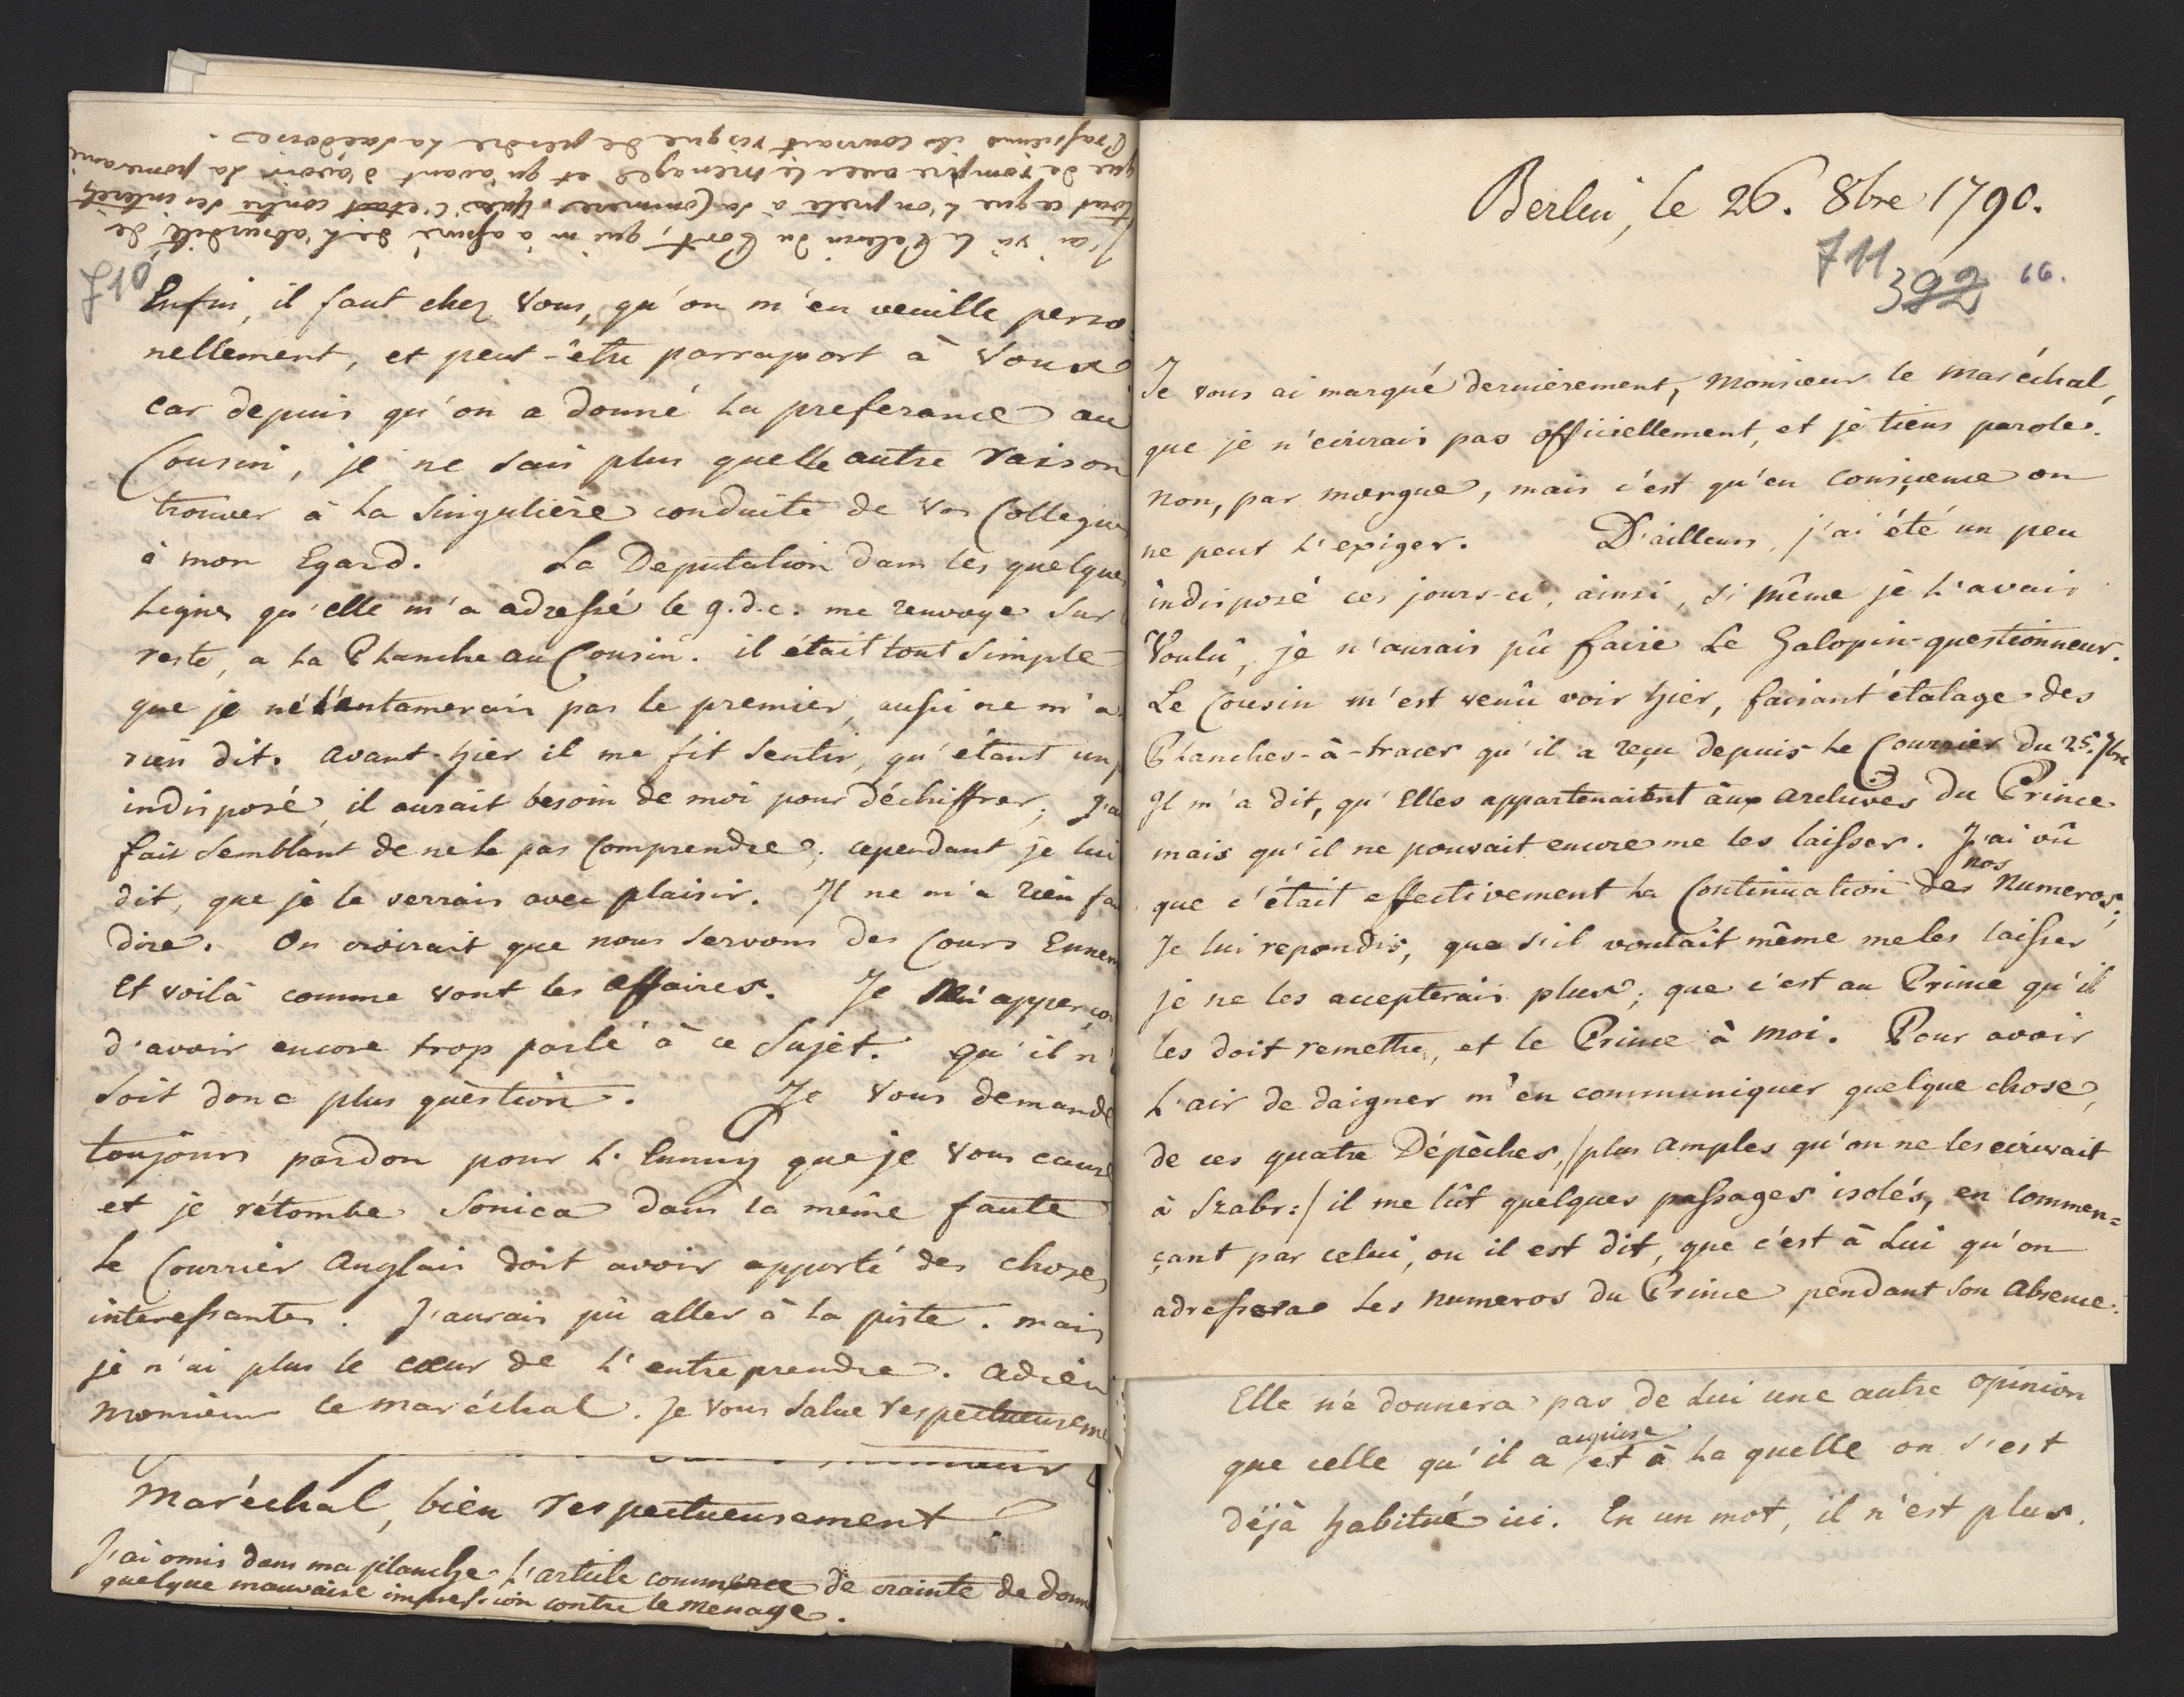 J'ai vû le Pelerin du Nort, qui m'a assuré de l'absurdité de
tout ce que l'on prete à sa Commere. que c'etait contre ses interêts
que de rompre avec le menage et qu'avant d'avoir la pomeranie
Prussienne ils couraient risque de perdre la Suédoise.
710
Enfin, il faut chez Vous, qu'on m'en veuille perso
nellement, et peut-être parrapport à Vous
car depuis qu'on a donné la preference au
Cousin, je ne sais plus quelle autre raison
trouver à la Singulière conduite de Vos Collegues
à mon Egard. La Deputation dans les quelques
Lignes qu'elle m'a adressé le 9. d. c. me renvoye sur
reste, a la Planche au Cousin. il était tout simple
que je ne l'entamerais pas le premier, aussi ne m'a
rien dit. Avant-hier il me fit sentir, qu'étant un
indisposé, il aurait besoin de moi pour déchiffrer; J'ai
fait semblant de ne le pas Comprendre; cependant je lui
dit, que je le verrais avec plaisir. Il ne m'a rien fa
dire. On croirait que nous servons des Cours Ennem
Et voilà comme vont les affaires. Je m'apperço
d'avoir encore trop parlé à ce Sujet. qu'il n'
soit donc plus quèstion. Je Vous demande
toujours pardon pour L'Ennuy que je Vous cause
et je rétombe Sonica dans la même faute
Le Courrièr Anglais doit avoir apporté des choses
interessantes. J'aurais pû aller à la piste. mais
je n'ai plus le cœur de L'entreprendre. Adieu
Monsieur le maréchal. Je Vous Salue respectueuseme
Maréchal, bien respectueusement
J'ai omis dans ma planche L'article commerce de crainte de donn
quelque mauvaise impression contre le menage.
Berlin, le 26. 8bre 1790.
711
392 16.
Je vous ai marqué dernièrement, Monsieur le Maréchal,
que je n'ecrirais pas officiellement, et je tiens parole.
Non, par morgue, mais c'est qu'en Conscience on
ne peut l'exiger. D'ailleurs, j'ai été un peu
indisposé ces jours-ci, ainsi, si même je l'avais
Voulû, je n'aurais pû faire Le Galopin-questionneur.
Le Cousin m'est venû voir hier, faisant étalage des
Planches-à-tracer qu'il a reçu depuis le Courrier du 25. 7bre
Il m'a dit, qu'Elles appartenaient aux archives du Prince
mais qu'il ne pouvait encore me les laisser. J'ai vû
nos
que c'était effectivement la Continuation des Numeros;
Je lui repondis, que s'il voulait même me les laisser
je ne les accepterais plus; que c'est au Prince qu'il
les doit remettre, et le Prince à moi. Pour avoir
L'air de daigner m'en communiquer quelque chose,
de ces quatre Dépèches, /plus amples qu'on ne les ecrivait
à Szabr:/ il me lût quelques passages isolés, en Commen=
çant par celui, ou il est dit, que c'est à Lui qu'on
adressera Les Numeros du Prince pendant son Absence.
Elle n'e donnera pas de Lui une autre opinion
acquise
que celle qu'il a et à La quelle on s'est
déjà habitué ici. En un mot, il n'est plus.